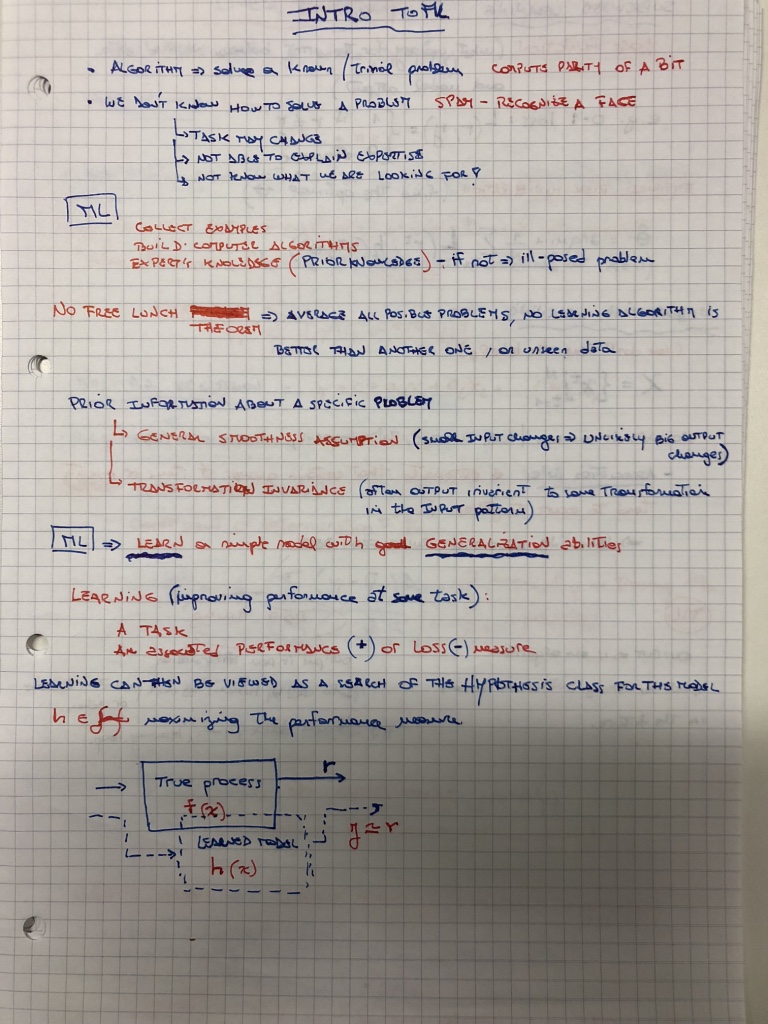 INTRO TO ML
• ALGORITHM => solve a known / Trivial problem COMPUTS PARITY OF A BIT
• WE DON'T KNOW HOW TO SOLVE A PROBLEM SPAM - RECOGNISE A FACE
↳ TASK MAY CHANGE
↳ NOT ABLE TO EXPLAIN EXPERTISE
↳ NOT KNOW WHAT WE ARE LOOKING FOR?
ML
COLLECT EXAMPLES
BUILD COMPUTER ALGORITHMS
EXPERT'S KNOWLEDGE (PRIOR KNOWLEDGE) - if not => ill-posed problem
NO FREE LUNCH => AVERAGE ALL POSIBLE PROBLEMS, NO LEARNING ALGORITHM IS
THEOREM
BETTER THAN ANOTHER ONE, on unseen data
PRIOR INFORMATION ABOUT A SPECIFIC PROBLEM
↳ GENERAL SMOOTHNESS ASSUMPTION (small INPUT changes => UNLIKELY BIG OUTPUT
changes)
↳ TRANSFORMATION INVARIANCE (often OUTPUT invarient to some Transformation
in the INPUT pattern)
ML => LEARN a simple model with good GENERALIZATION abilities
LEARNING (improving performance at some task):
A TASK
An associated PERFORMANCE (+) or LOSS (-) measure
LEARNING CAN THEN BE VIEWED AS A SEARCH OF THE HYPOTHESIS CLASS FOR THIS MODEL
h ∈ maximizing the performance measure
True process r
f(x)
LEARNED MODEL y ≃ r
h(x)